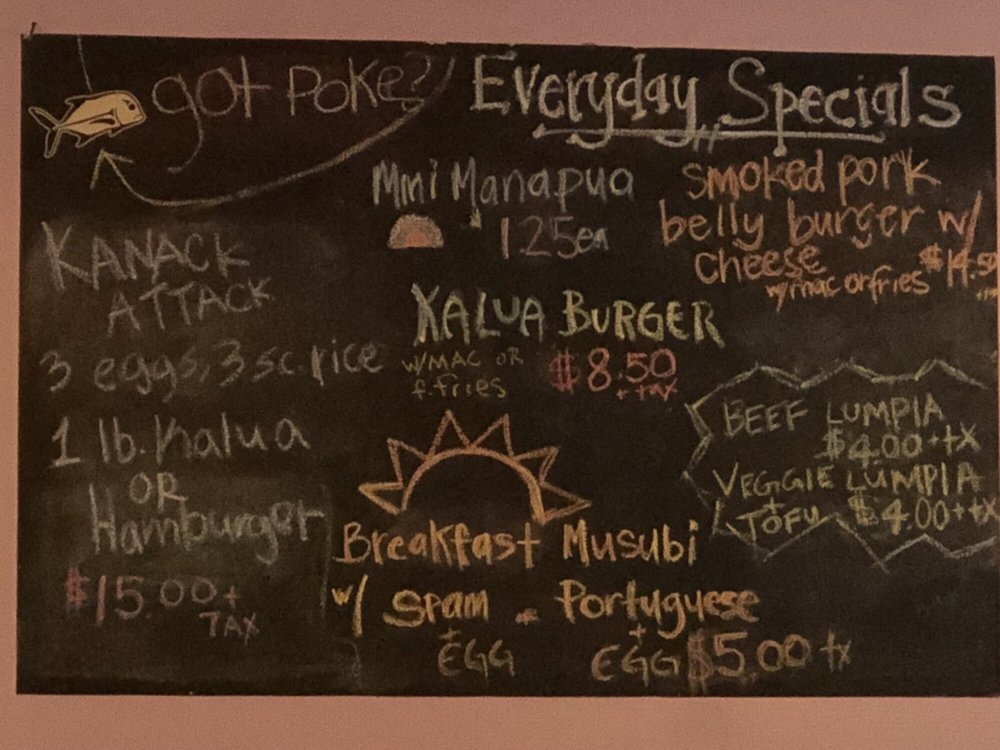 got Poke?
Everyday Specials
Mini Manapua
1.25ea
smoked pork
belly burger w/
cheese $14.50
w/mac or fries
KANACK
ATTACK
3 eggs, 3 sc. rice
1 lb. Kalua
OR
Hamburger
$15.00+
TAX
KALUA BURGER
w/MAC OR $8.50
f.fries + tax
BEEF LUMPIA
$4.00+tx
VEGGIE LUMPIA
+
TOFU $4.00+tx
Breakfast Musubi
w/ Spam or Portuguese
+ +
EGG EGG $5.00+tx